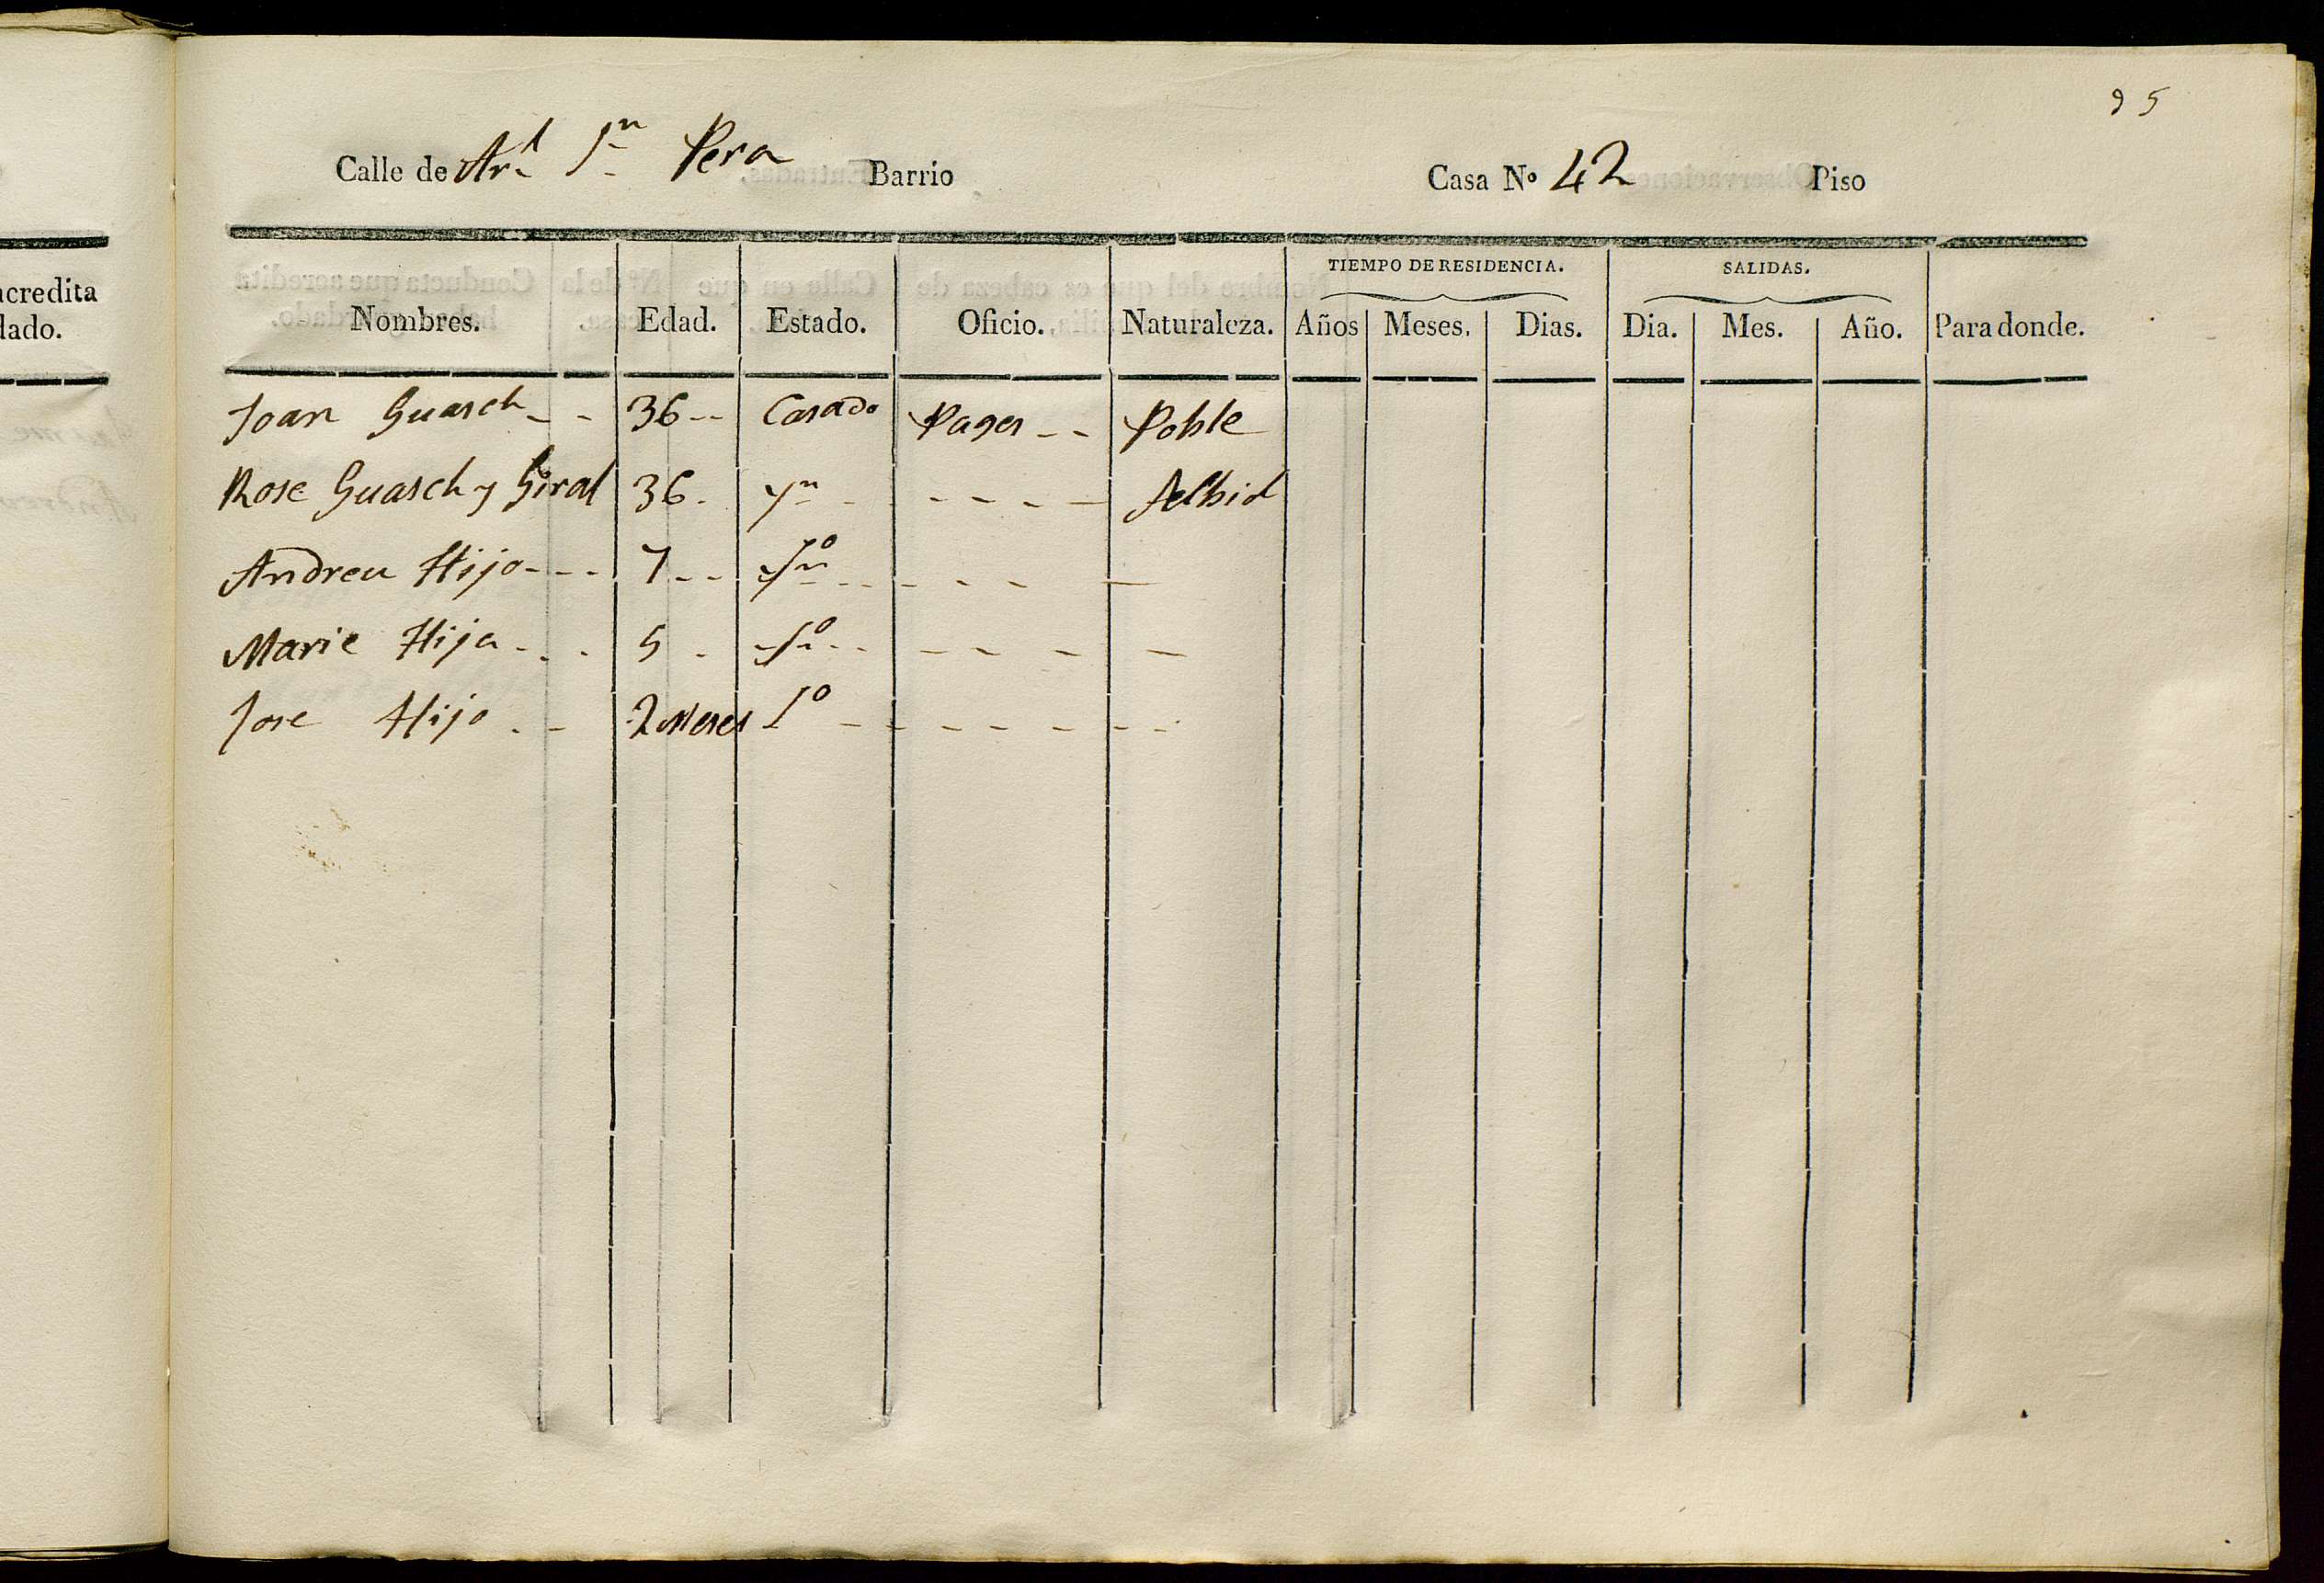 95
Calle de Ar.l Sn Pera Barrio Casa No 42 Piso
acredita
dado.
TIEMPO DE RESIDENCIA. SALIDAS.
Nombres. Edad. Estado. Oficio. Naturaleza. Años Meses. Dias. Dia. Mes. Año. Para donde.
Joan Guasch - - 36 - - Casado Pages - - Poble
Rose Guasch y Giral 36 - - - - -
Andreu Hijo - - - 7 - - - - - -
Marie Hija - - - 5 - - - - -
Jose Hijo - - 2 Meses So - - - - - - -